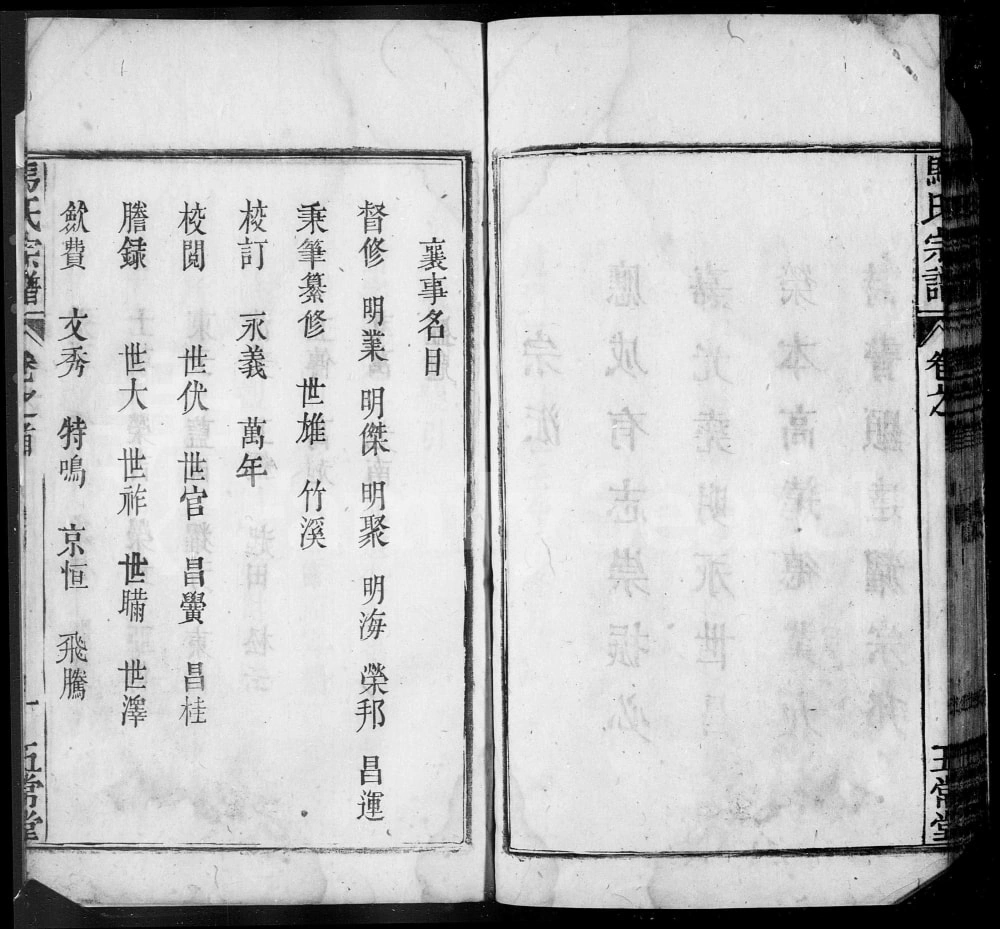 馬氏宗譜 卷之 五常堂
襄事名目
督修 明業 明傑 明聚 明海 榮邦 昌運
秉筆纂修 世雄 竹溪
校訂 永義 萬年
校閱 世伏 世官 昌黌 昌桂
謄録 世大 世祚 世瞞 世澤
斂費 文秀 特鳴 京恒 飛騰
馬氏宗譜 卷之首 一 五常堂